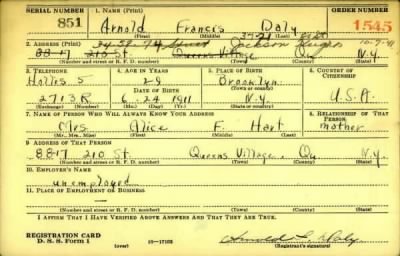 SERIAL NUMBER 1. NAME (Print) ORDER NUMBER
851 Arnold Francis Daly 1545
(First) (Middle) (Last)
37-21
2. ADDRESS (Print) 34-59-74 Street Jackson 10-7-41
8817 210 St. Queens Village Qu N.Y.
(Number and street or R. F. D. number) (Town) (County) (State)
3. TELEPHONE 4. AGE IN YEARS 5. PLACE OF BIRTH 6. COUNTRY OF CITIZENSHIP
Hollis 5 29 Brooklyn
DATE OF BIRTH (Town or county)
2713R 6-24 1911 N.Y. U.S.A.
(Exchange) (Number) (Mo.) (Day) (Yr.) (State or country)
7. NAME OF PERSON WHO WILL ALWAYS KNOW YOUR ADDRESS 8. RELATIONSHIP OF THAT PERSON
Mrs Alice F. Hart mother
(Mr., Mrs., Miss) (First) (Middle) (Last)
9. ADDRESS OF THAT PERSON
8817 210 St. Queens Village. Qu. N.Y.
(Number and street or R. F. D. number) (Town) (County) (State)
10. EMPLOYER'S NAME
unemployed
11. PLACE OF EMPLOYMENT OR BUSINESS
(Number and street or R. F. D. number) (Town) (County) (State)
I AFFIRM THAT I HAVE VERIFIED ABOVE ANSWERS AND THAT THEY ARE TRUE.
REGISTRATION CARD
D. S. S. Form 1 (over) 16—17105 (Registrant's signature)